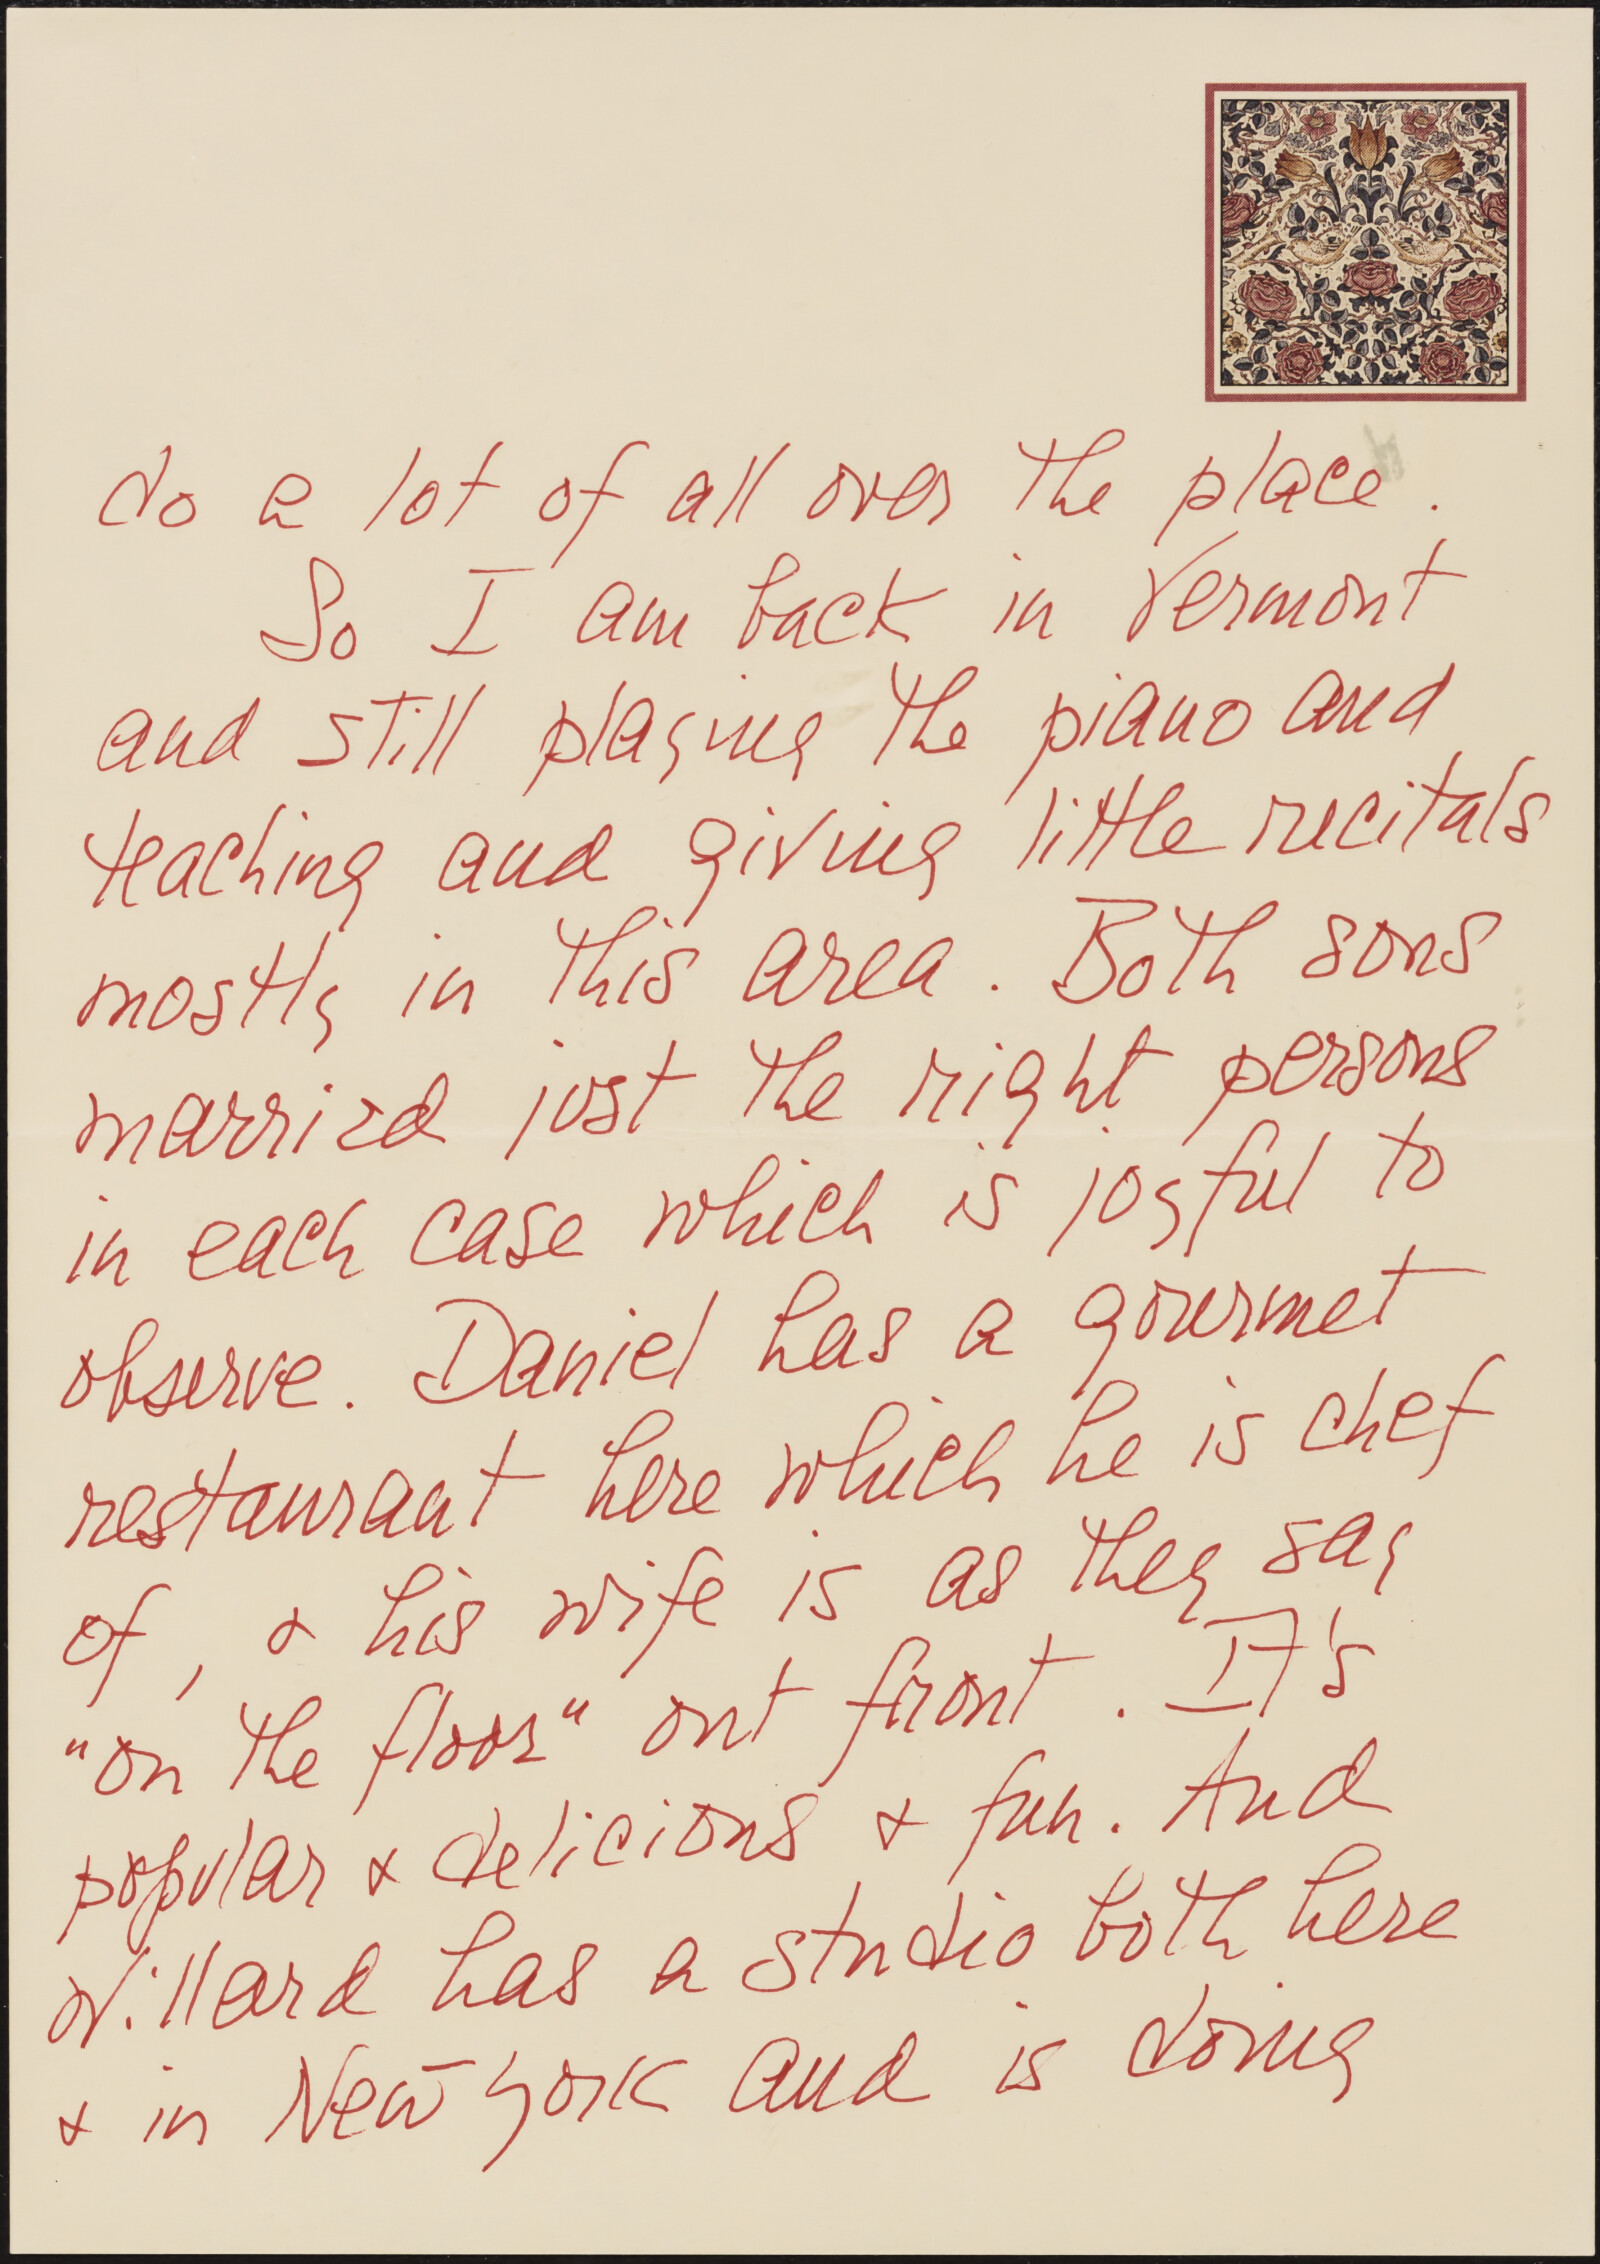 do a lot of all over the place.
So I am back in Vermont
and still playing the piano and
teaching and giving little recitals
mostly in this area. Both sons
married just the right persons
in each case which is joyful to
observe. Daniel has a gourmet
restaurant here which he is chef
of, & his wife is as they say
"on the floor" out front. It's
popular & delicious & fun. And
Willard has a studio both here
& in New York and is doing